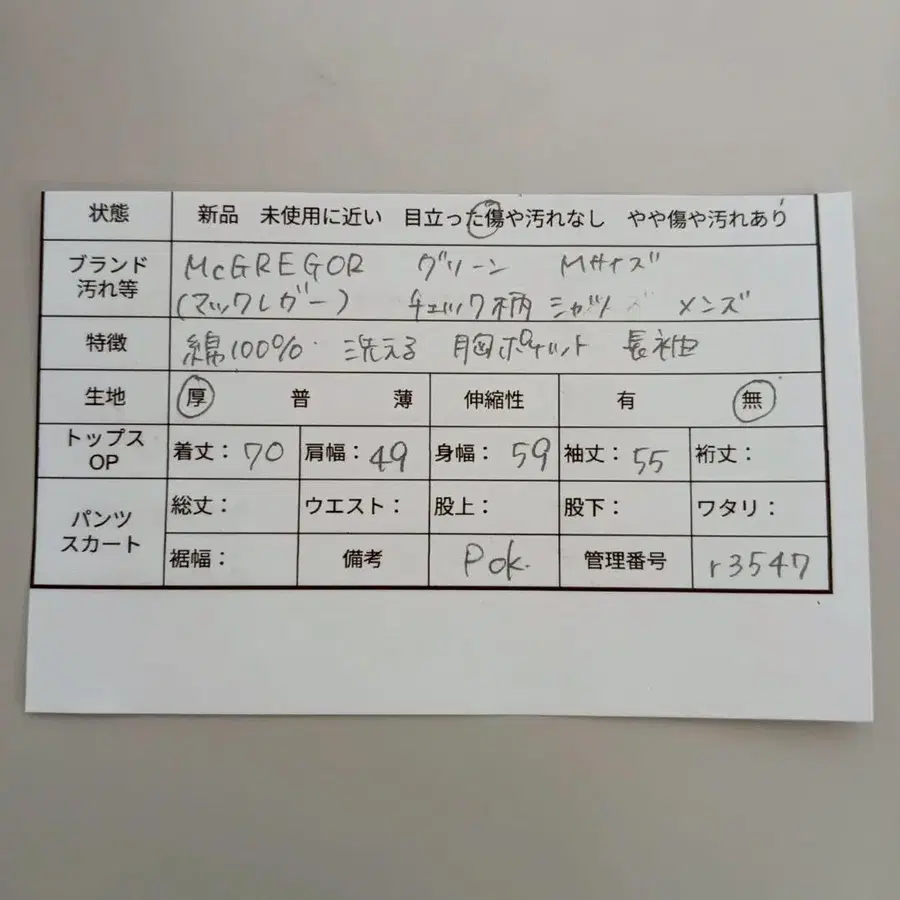 状態 新品 未使用に近い 目立った傷や汚れなし やや傷や汚れあり
ブランド McGREGOR グリーン Mサイズ
汚れ等 (マックレガー) チェック柄 シャツ メンズ
特徴 綿100% 洗える 胸ポケット 長袖
生地 厚 普 薄 伸縮性 有 無
トップス OP 着丈: 70 肩幅: 49 身幅: 59 袖丈: 55 裄丈:
パンツ スカート 総丈: ウエスト: 股上: 股下: ワタリ:
裾幅: 備考 Pok. 管理番号 r3547